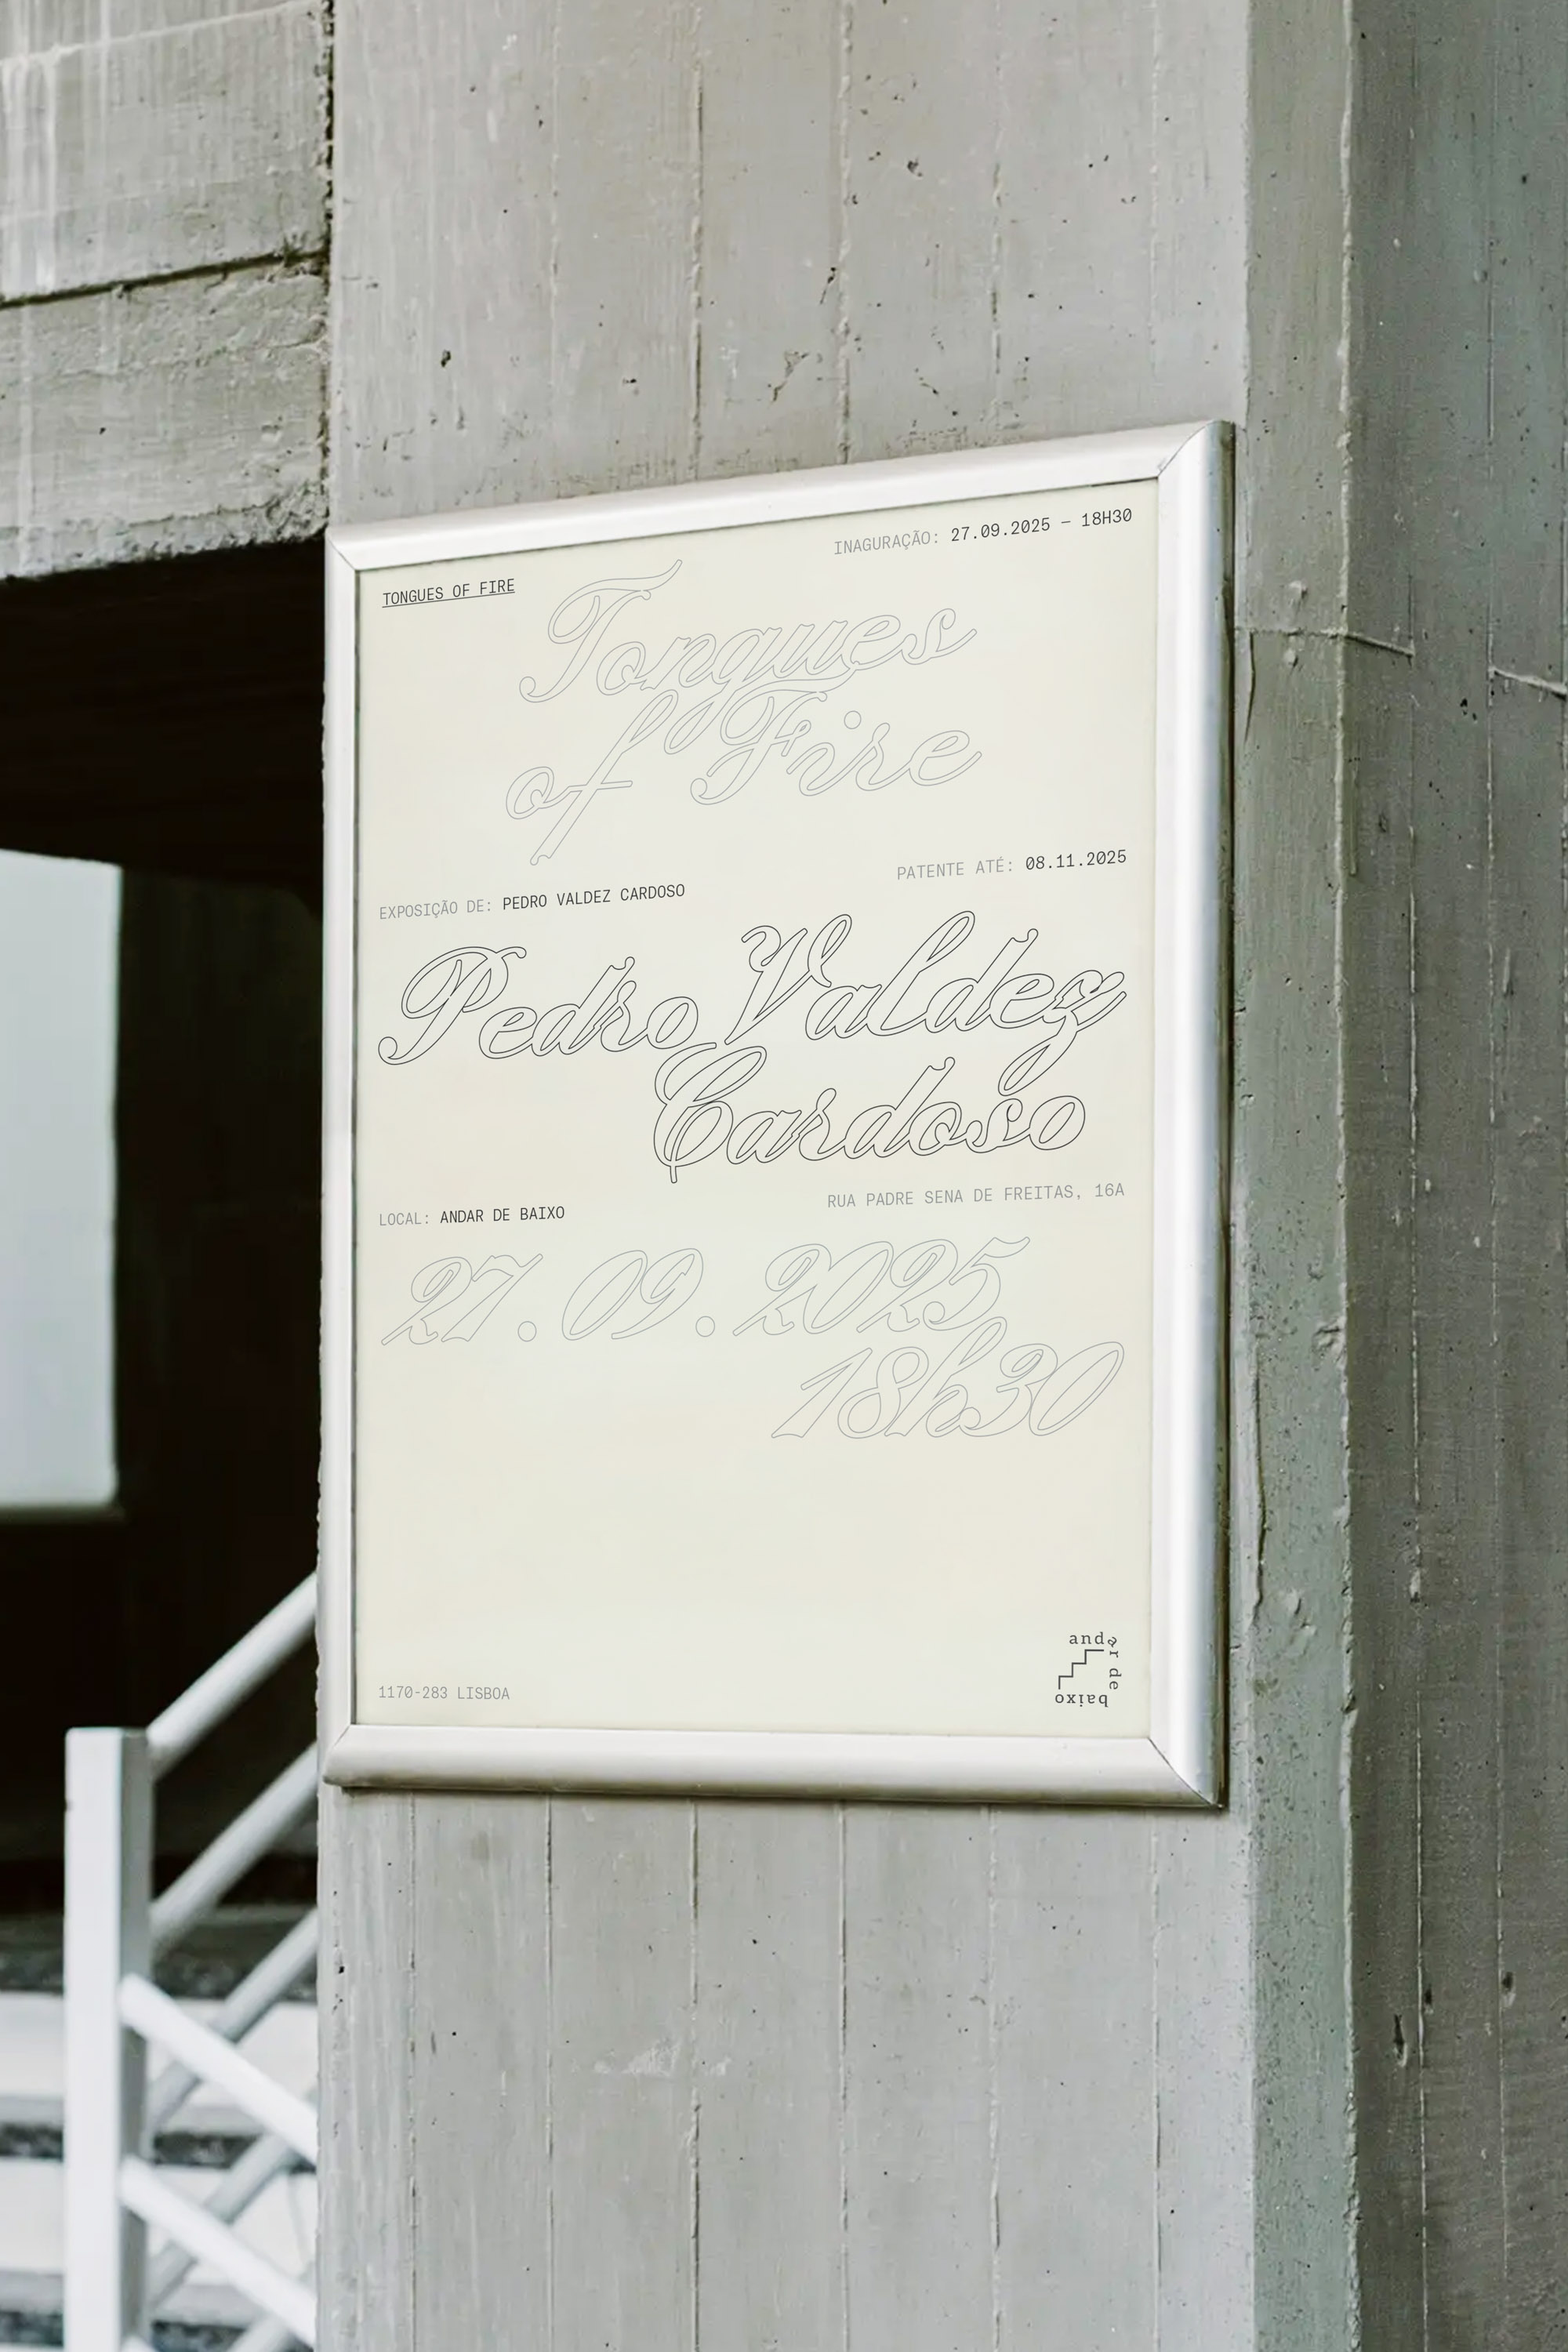 INAGURAÇÃO: 27.09.2025 — 18H30
TONGUES OF FIRE
Tongues
of Fire
PATENTE ATÉ: 08.11.2025
EXPOSIÇÃO DE: PEDRO VALDEZ CARDOSO
Pedro Valdez
Cardoso
RUA PADRE SENA DE FREITAS, 16A
LOCAL: ANDAR DE BAIXO
27.09.2025
18h30
andar de baixo
1170-283 LISBOA